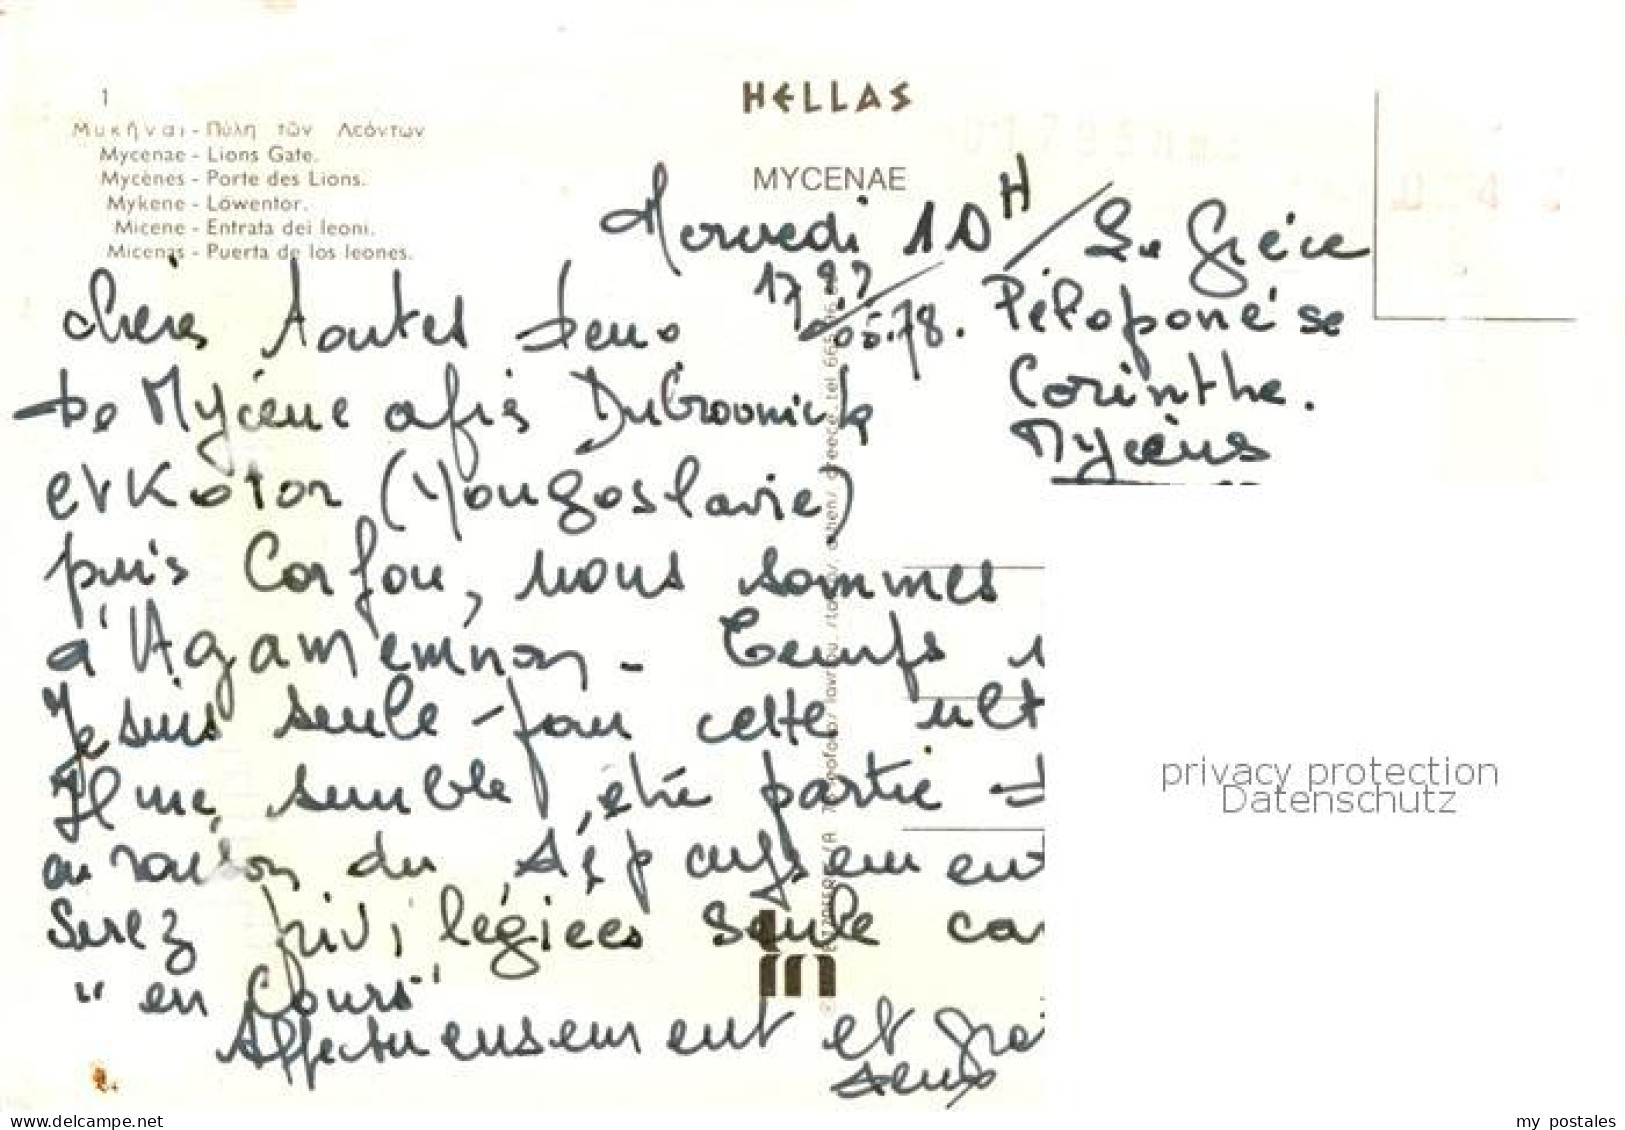 1
Μυκῆναι - Πύλη τῶν Λεόντων
Mycenae - Lions Gate.
Mycènes - Porte des Lions.
Mykene - Löwentor.
Micene - Entrata dei leoni.
Micenas - Puerta de los leones.
HELLAS
MYCENAE
Mercredi 10 H / En Grèce
17
05.78.
Péloponèse
Corinthe.
Mycènes
chères toutes deux
De Mycène après Dubrovnick
et Kotor (Yougoslavie)
puis Corfou, nous sommes
à Agamemnon - Temps
Je suis seule pour cette
Il me semble, été partie
en raison du
Serez privilégiées seule
"en Cours"
Affectueusement et
deux
privacy protection
Datenschutz
www.delcampe.net
my_postales